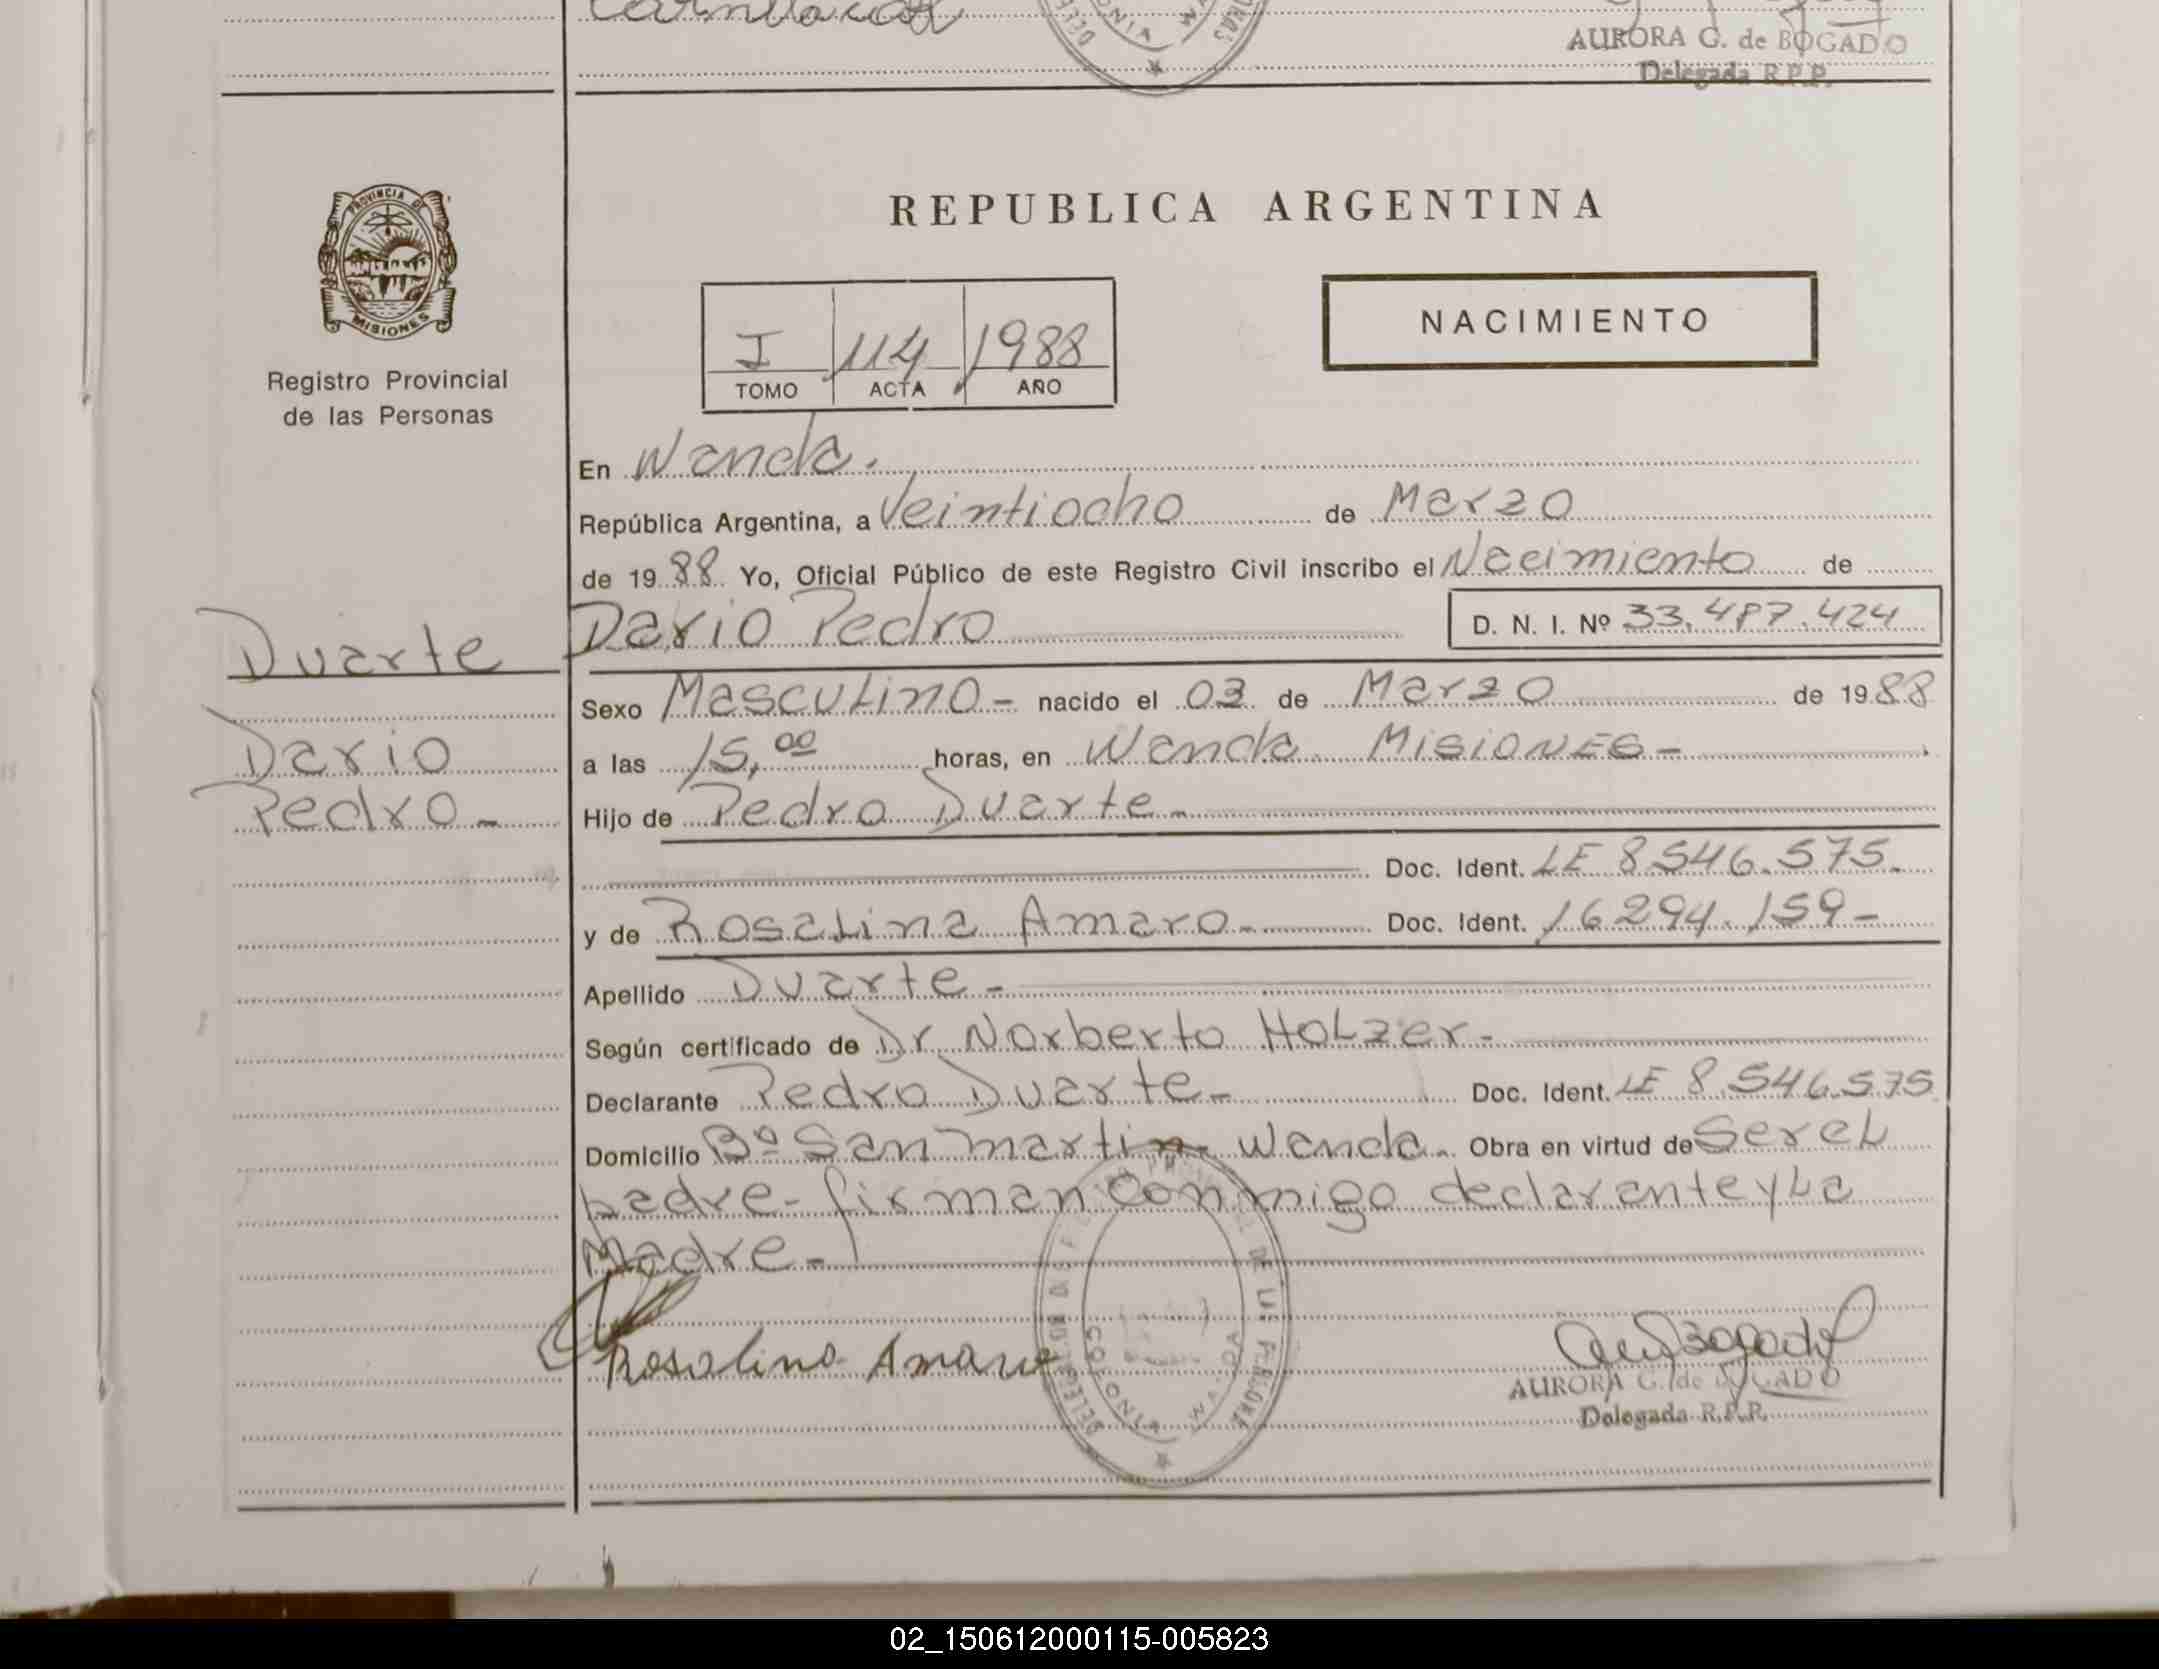 AURORA G. de BOGADO
Delegada R.P.P.
PROVINCIA DE
MISIONES
Registro Provincial
de las Personas
REPUBLICA ARGENTINA
I 114 1988
TOMO ACTA AÑO
NACIMIENTO
En Wanda.
República Argentina, a Veintiocho de Marzo
de 1988 Yo, Oficial Público de este Registro Civil inscribo el Nacimiento de
Dario Pedro D. N. I. Nº 33.487.424
Duarte
Dario
Pedro-
Sexo Masculino- nacido el 03 de Marzo de 1988
a las 15,00 horas, en Wanda Misiones-
Hijo de Pedro Duarte-
Doc. Ident. LE 8546.575.
y de Rosalina Amaro- Doc. Ident. 16294.159-
Apellido Duarte-
Según certificado de Dr Norberto Holzer-
Declarante Pedro Duarte- Doc. Ident. LE 8.546.575
Domicilio Bº San Martin Wanda. Obra en virtud de Ser el
padre- firman conmigo declarante y La
Madre-
Rosalina Amaro
COLONIA WANDA
AURORA G. de BOGADO
Delegada R.P.P.
02_150612000115-005823